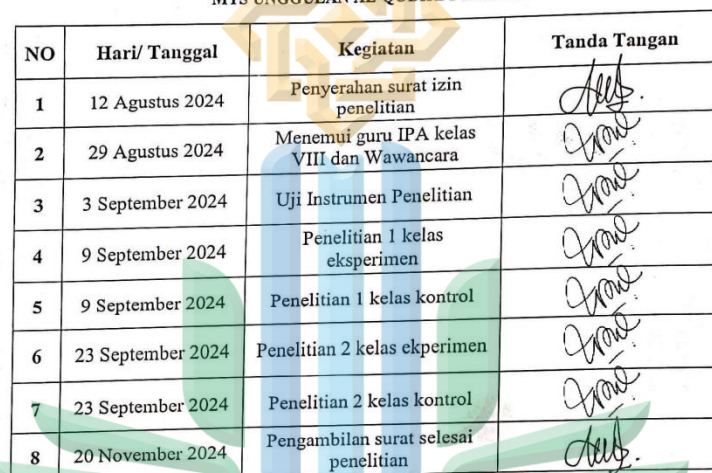 MTS UNGGULAN
NO Hari/ Tanggal Kegiatan Tanda Tangan
1 12 Agustus 2024 Penyerahan surat izin
penelitian
2 29 Agustus 2024 Menemui guru IPA kelas
VIII dan Wawancara
3 3 September 2024 Uji Instrumen Penelitian
4 9 September 2024 Penelitian 1 kelas
eksperimen
5 9 September 2024 Penelitian 1 kelas kontrol
6 23 September 2024 Penelitian 2 kelas ekperimen
7 23 September 2024 Penelitian 2 kelas kontrol
8 20 November 2024 Pengambilan surat selesai
penelitian